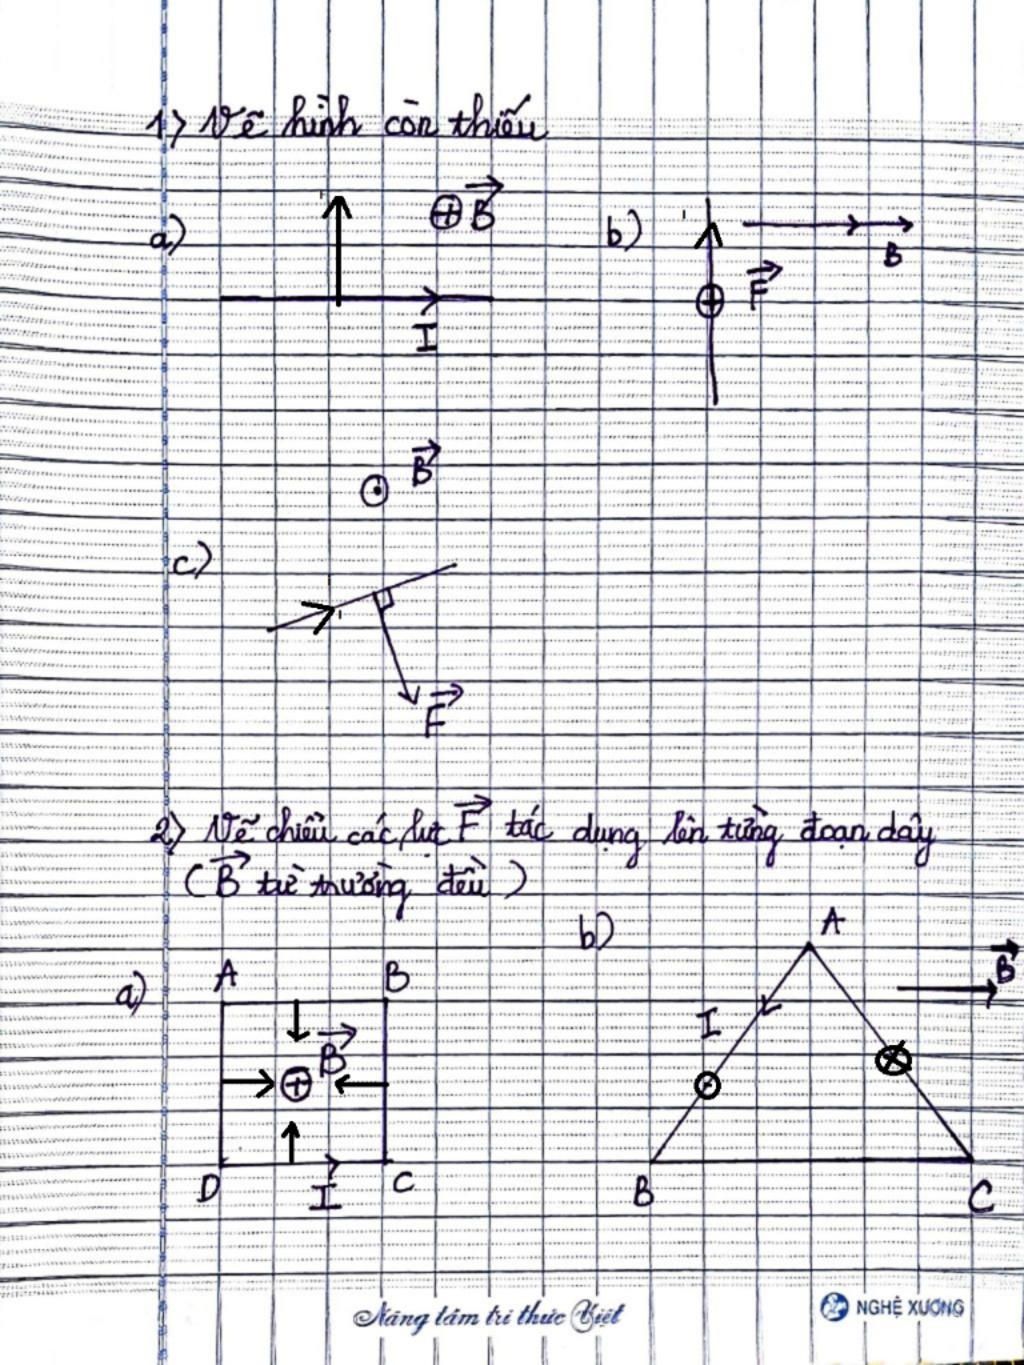 1) Vẽ hình còn thiếu
a) B b) B
I F
B
c)
F
2) Vẽ chiều các lực F tác dụng lên từng đoạn dây
(B từ trường đều)
b) A
a) A B B
I
B
D I C B C
Nâng tầm tri thức Việt NGHỆ XƯƠNG